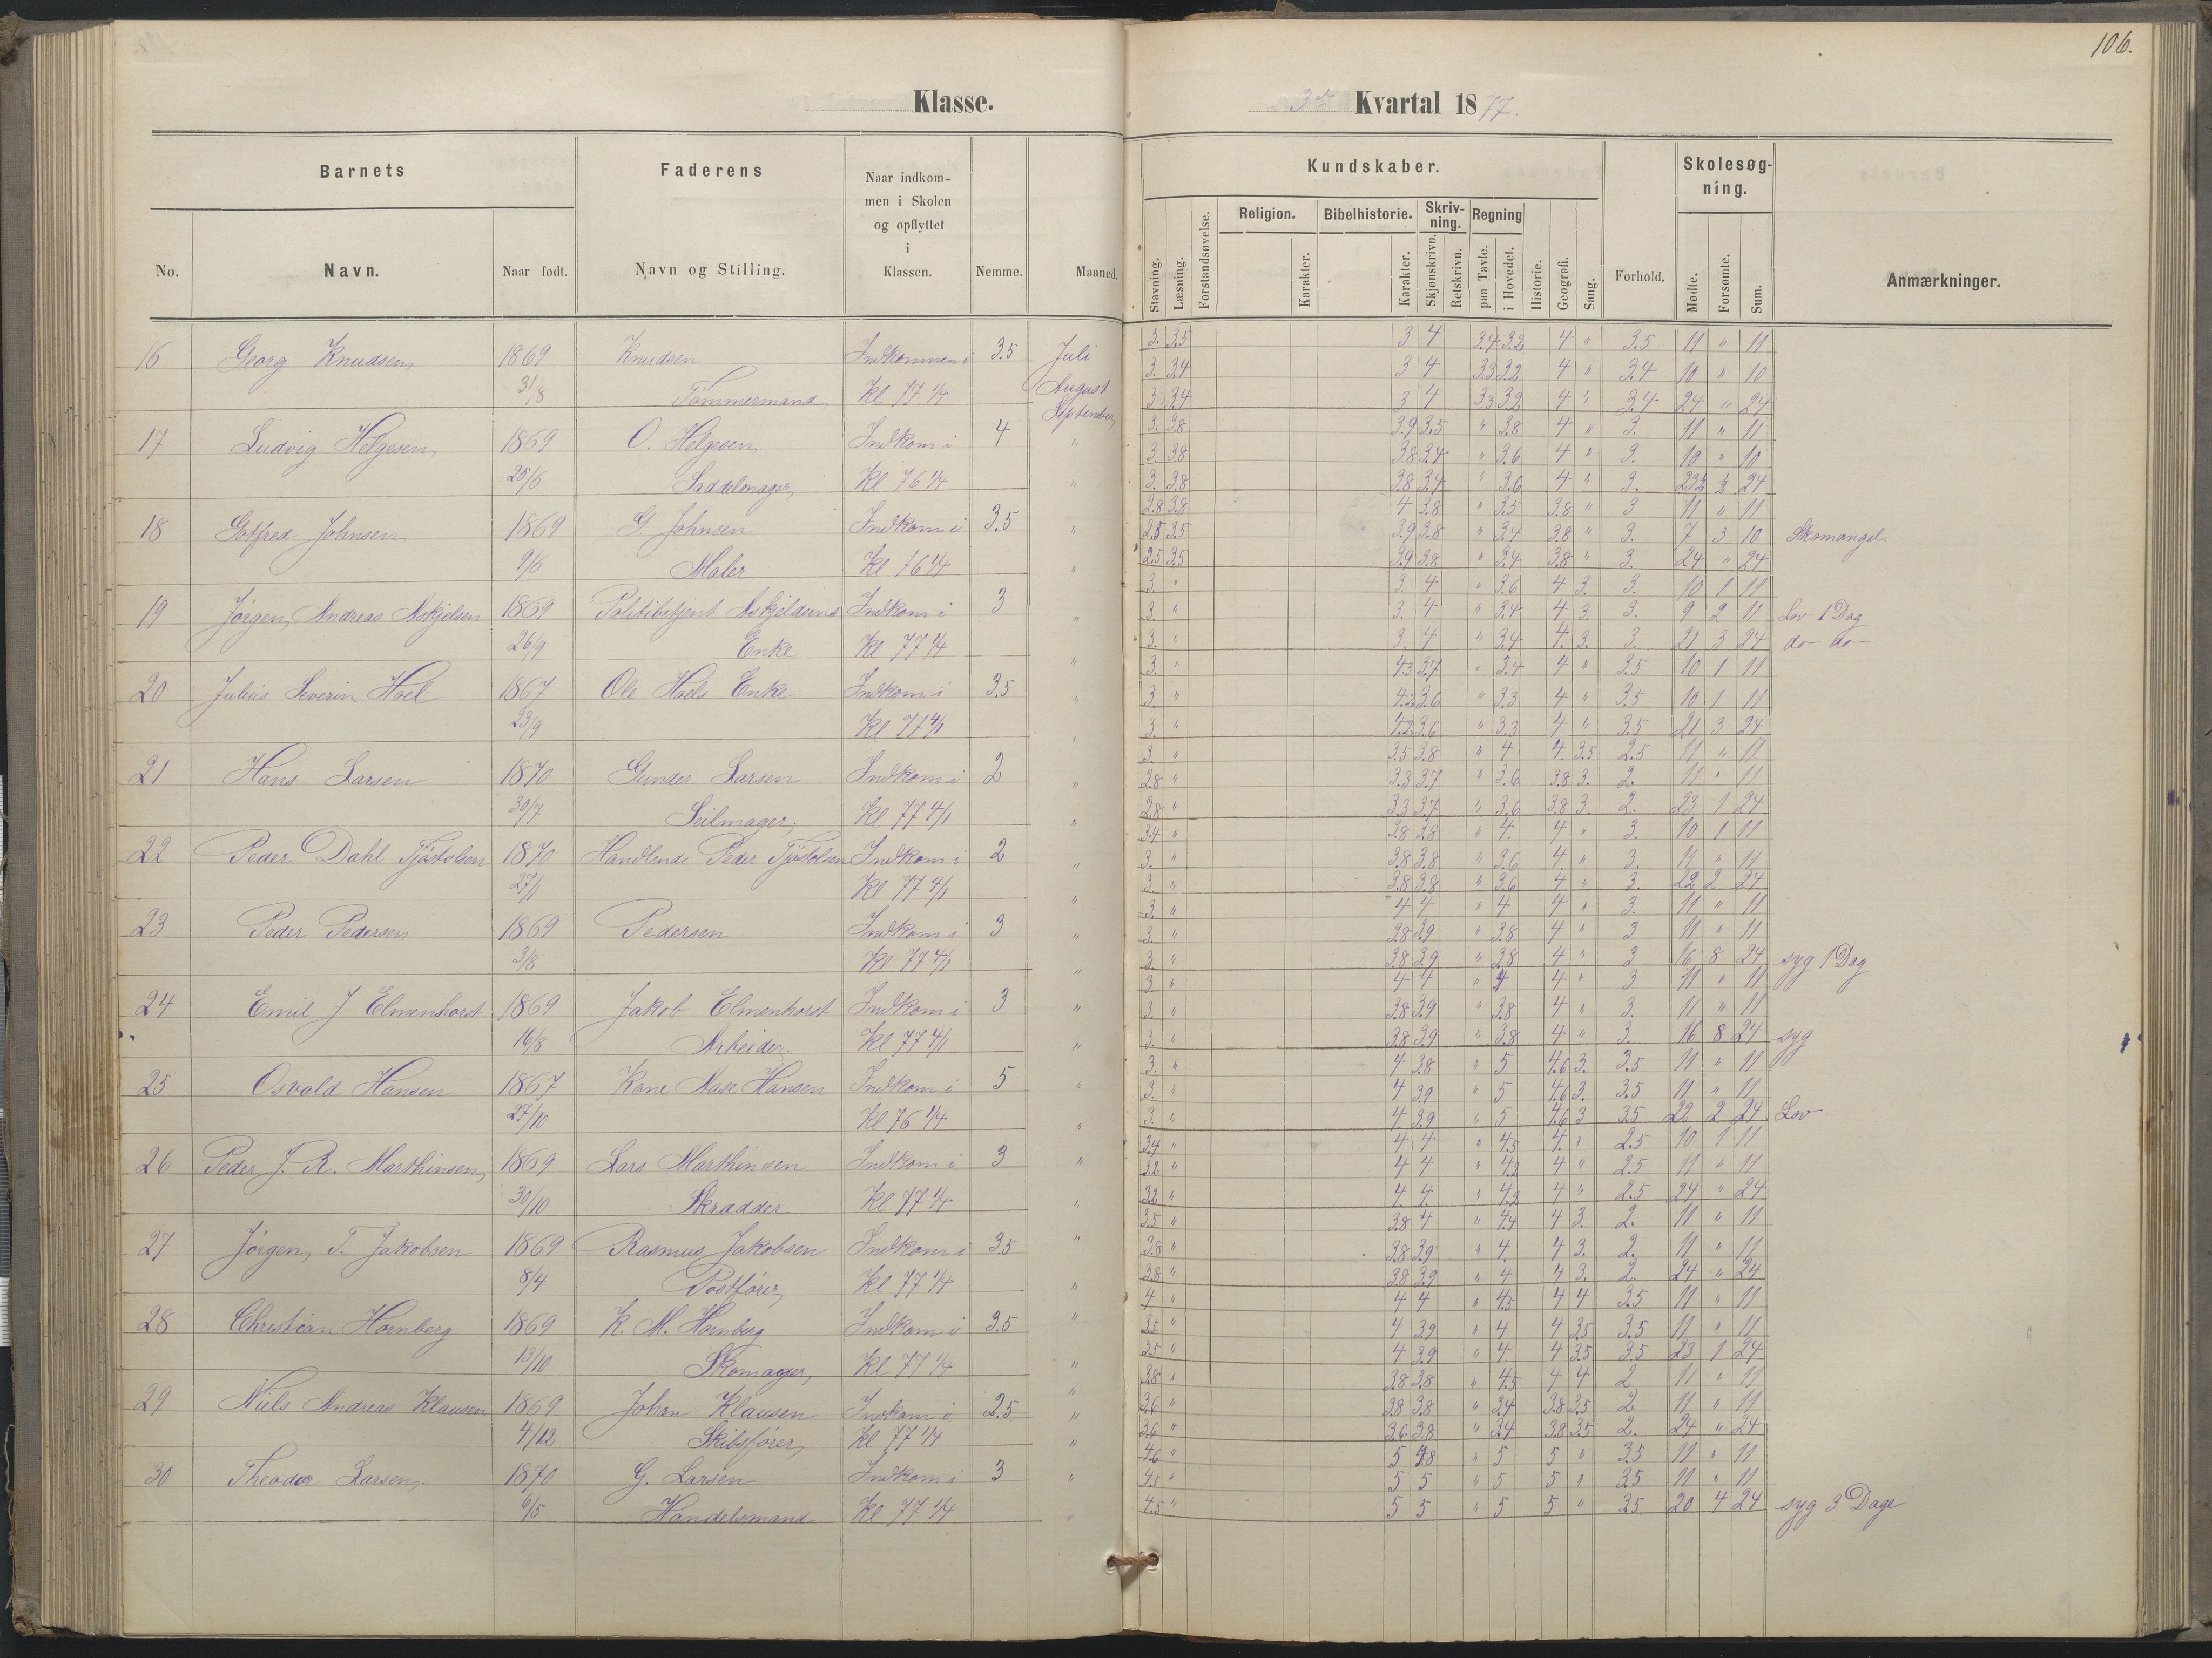 106.
Klasse.
3die Kvartal 1877.
Barnets
Faderens
Naar indkommen i Skolen og opflyttet i Klassen.
Nemme.
Maaned.
No.
Navn.
Naar født.
Navn og Stilling.
Kundskaber.
Skolesøgning.
Stavning.
Læsning.
Forstandsøvelse.
Religion.
Karakter.
Bibelhistorie.
Karakter.
Skrivning.
Skjønskrivn.
Retskrivn.
Regning
paa Tavle.
i Hovedet.
Historie.
Geografi.
Sang.
Forhold.
Mødte.
Forsømte.
Sum.
Anmærkninger.
16 Georg Knudsen 1869 Knudsen Indkommen i 3.5 Juli 3. 3.5 3 4 3.4 3.2 4 " 3.5 11 " 11
31/8 Tømmermand Kl 77 1/4 August 3. 3.4 3 4 3.3 3.2 4 " 3.4 10 " 10
September 3. 3.4 3 4 3.3 3.2 4 " 3.4 24 " 24
17 Ludvig Helgesen 1869 O. Helgesen Indkom i 4 " 3. 3.8 3.9 3.5 " 3.8 4 " 3. 11 " 11
25/6 Saddelmager, Kl 76 1/4 " 3. 3.8 3.8 3.4 " 3.6 4 " 3. 10 " 10
3. 3.8 3.8 3.4 " 3.6 4 " 3. 23½ ½ 24
18 Gotfred Johnsen 1869 G. Johnsen Indkom i 3.5 " 2.8 3.8 4 3.8 " 3.5 3.8 " 3 11 " 11
9/6 Maler Kl 76 1/4 " 2.5 3.5 3.9 3.8 " 3.4 3.8 " 3. 7 3 10 Skomangel
2.5 3.5 3.9 3.8 " 3.4 3.8 " 3. 24 " 24
19 Jørgen Andreas Askjelsen 1869 Politibetjent Askjeldsens Indkom i 3 " 3. " 3. 4 " 3.6 4 3. 3. 10 1 11
26/9 Enke Kl 77 1/4 " 3. " 3. 4 " 3.4 4 3. 3. 9 2 11 Lov 1 Dag
3. " 3. 4 " 3.4 4. 3. 3. 21 3 24 do do
20 Julius Severin Hoel 1867 Ole Hoels Enke Indkom i 3.5 " 3. " 4.3 3.7 " 3.4 4 " 3.5 10 1 11
23/9 Kl 77 4/1 " 3. " 4.2 3.6 " 3.3 4 " 3.5 10 1 11
3. " 4.2 3.6 " 3.3 4 " 3.5 21 3 24
21 Hans Larsen 1870 Gunder Larsen Indkom i 2 " 3. " 3.5 3.8 " 4 4. 3.5 2.5 11 " 11
30/7 Seilmager, Kl 77 4/1 " 2.8 " 3.3 3.7 " 3.6 3.8 3. 2. 11 " 11
2.8 " 3.3 3.7 " 3.6 3.8 3. 2. 23 1 24
22 Peder Dahl Tjøstolsen 1870 Handlende Peder Tjøstolsen Indkom i 2 " 3.4 " 3.8 3.8 " 4. 4 " 3. 10 1 11
27/1 Kl 77 4/1 " 3. " 3.8 3.8 " 3.6 4 " 3. 11 " 11
3. " 3.8 3.8 " 3.6 4 " 3. 22 2 24
23 Peder Pedersen 1869 Pedersen Indkom i 3 " 3. " 4 4 " 4 4 " 3. 11 " 11
3/8 Kl 77 4/1 " 3. " 3.8 3.9 " 3.8 4 " 3 11 " 11
3. " 3.8 3.9 " 3.8 4 " 3 16 8 24 syg 1 Dag
24 Emil J Elmenhorst 1869 Jakob Elmenhorst Indkom i 3 " 3. " 4 4 " 4 4 " 3 11 " 11
16/8 Arbeider Kl 77 4/1 " 3. " 3.8 3.9 " 3.8 4 " 3. 11 " 11
3. " 3.8 3.9 " 3.8 4 " 3. 16 8 24 syg
25 Osvald Hansen 1867 Kone Hansen Indkom i 5 " 3. " 4 3.8 " 5 4.6 3. 3.5 11 " 11
27/10 Kl 76 1/4 " 3. " 4 3.9 " 5 4.6 3. 3.5 11 " 11
3. " 4 3.9 " 5 4.6 3 3.5 22 2 24 Lov
26 Peder J. R. Marthinsen, 1869 Lars Marthinsen Indkom i 3 " 3.4 " 4 4 " 4.5 4. " 2.5 10 1 11
30/10 Skrædder Kl 77 1/4 " 3.2 " 4 4 " 4.2 4 " 2.5 11 " 11
3.2 " 4. 4. " 4.2 4 " 2.5 24 " 24
27 Jørgen, T. Jakobsen 1869 Rasmus Jakobsen Indkom i 3.5 " 3.5 " 3.8 4 " 4.4 4 3. 2. 11 " 11
8/4 Postfører, Kl 77 1/4 " 3.8 " 3.8 3.9 " 4. 4 3. 2. 11 " 11
3.8 " 3.8 3.9 " 4 4 3. 2. 24 " 24
28 Christian Hornberg 1869 K. M. Hornberg Indkom i 3.5 " 4 " 4 4 " 4.5 4 4 3.5 11 " 11
13/10 Skomager, Kl 77 1/4 " 3.5 " 4 3.9 " 4 4 3.5 3.5 11 " 11
3.5 " 4 3.9 " 4 4 3.5 3.5 23 1 24
29 Niels Andreas Klausen 1869 Johan Klausen Indkom i 2.5 " 3.8 " 3.8 3.8 " 4.5 4 4 2 11 " 11
4/12 Skibsfører, Kl 77 1/4 " 3.6 " 3.8 3.8 " 3.4 3.8 3.5 2. 11 " 11
3.6 " 3.6 3.8 " 3.4 3.8 3.5 2. 24 " 24
30 Theodor Larsen, 1870 G. Larsen Indkom i 3 " 4.6 " 5 4.8 " 5 5 " 3.5 11 " 11
6/5 Handelsmand Kl 77 1/4 " 4.5 " 5 5 " 5 5 " 3.5 11 " 11
4.5 " 5 5 " 5 5 " 3.5 20 4 24 syg 3 Dage